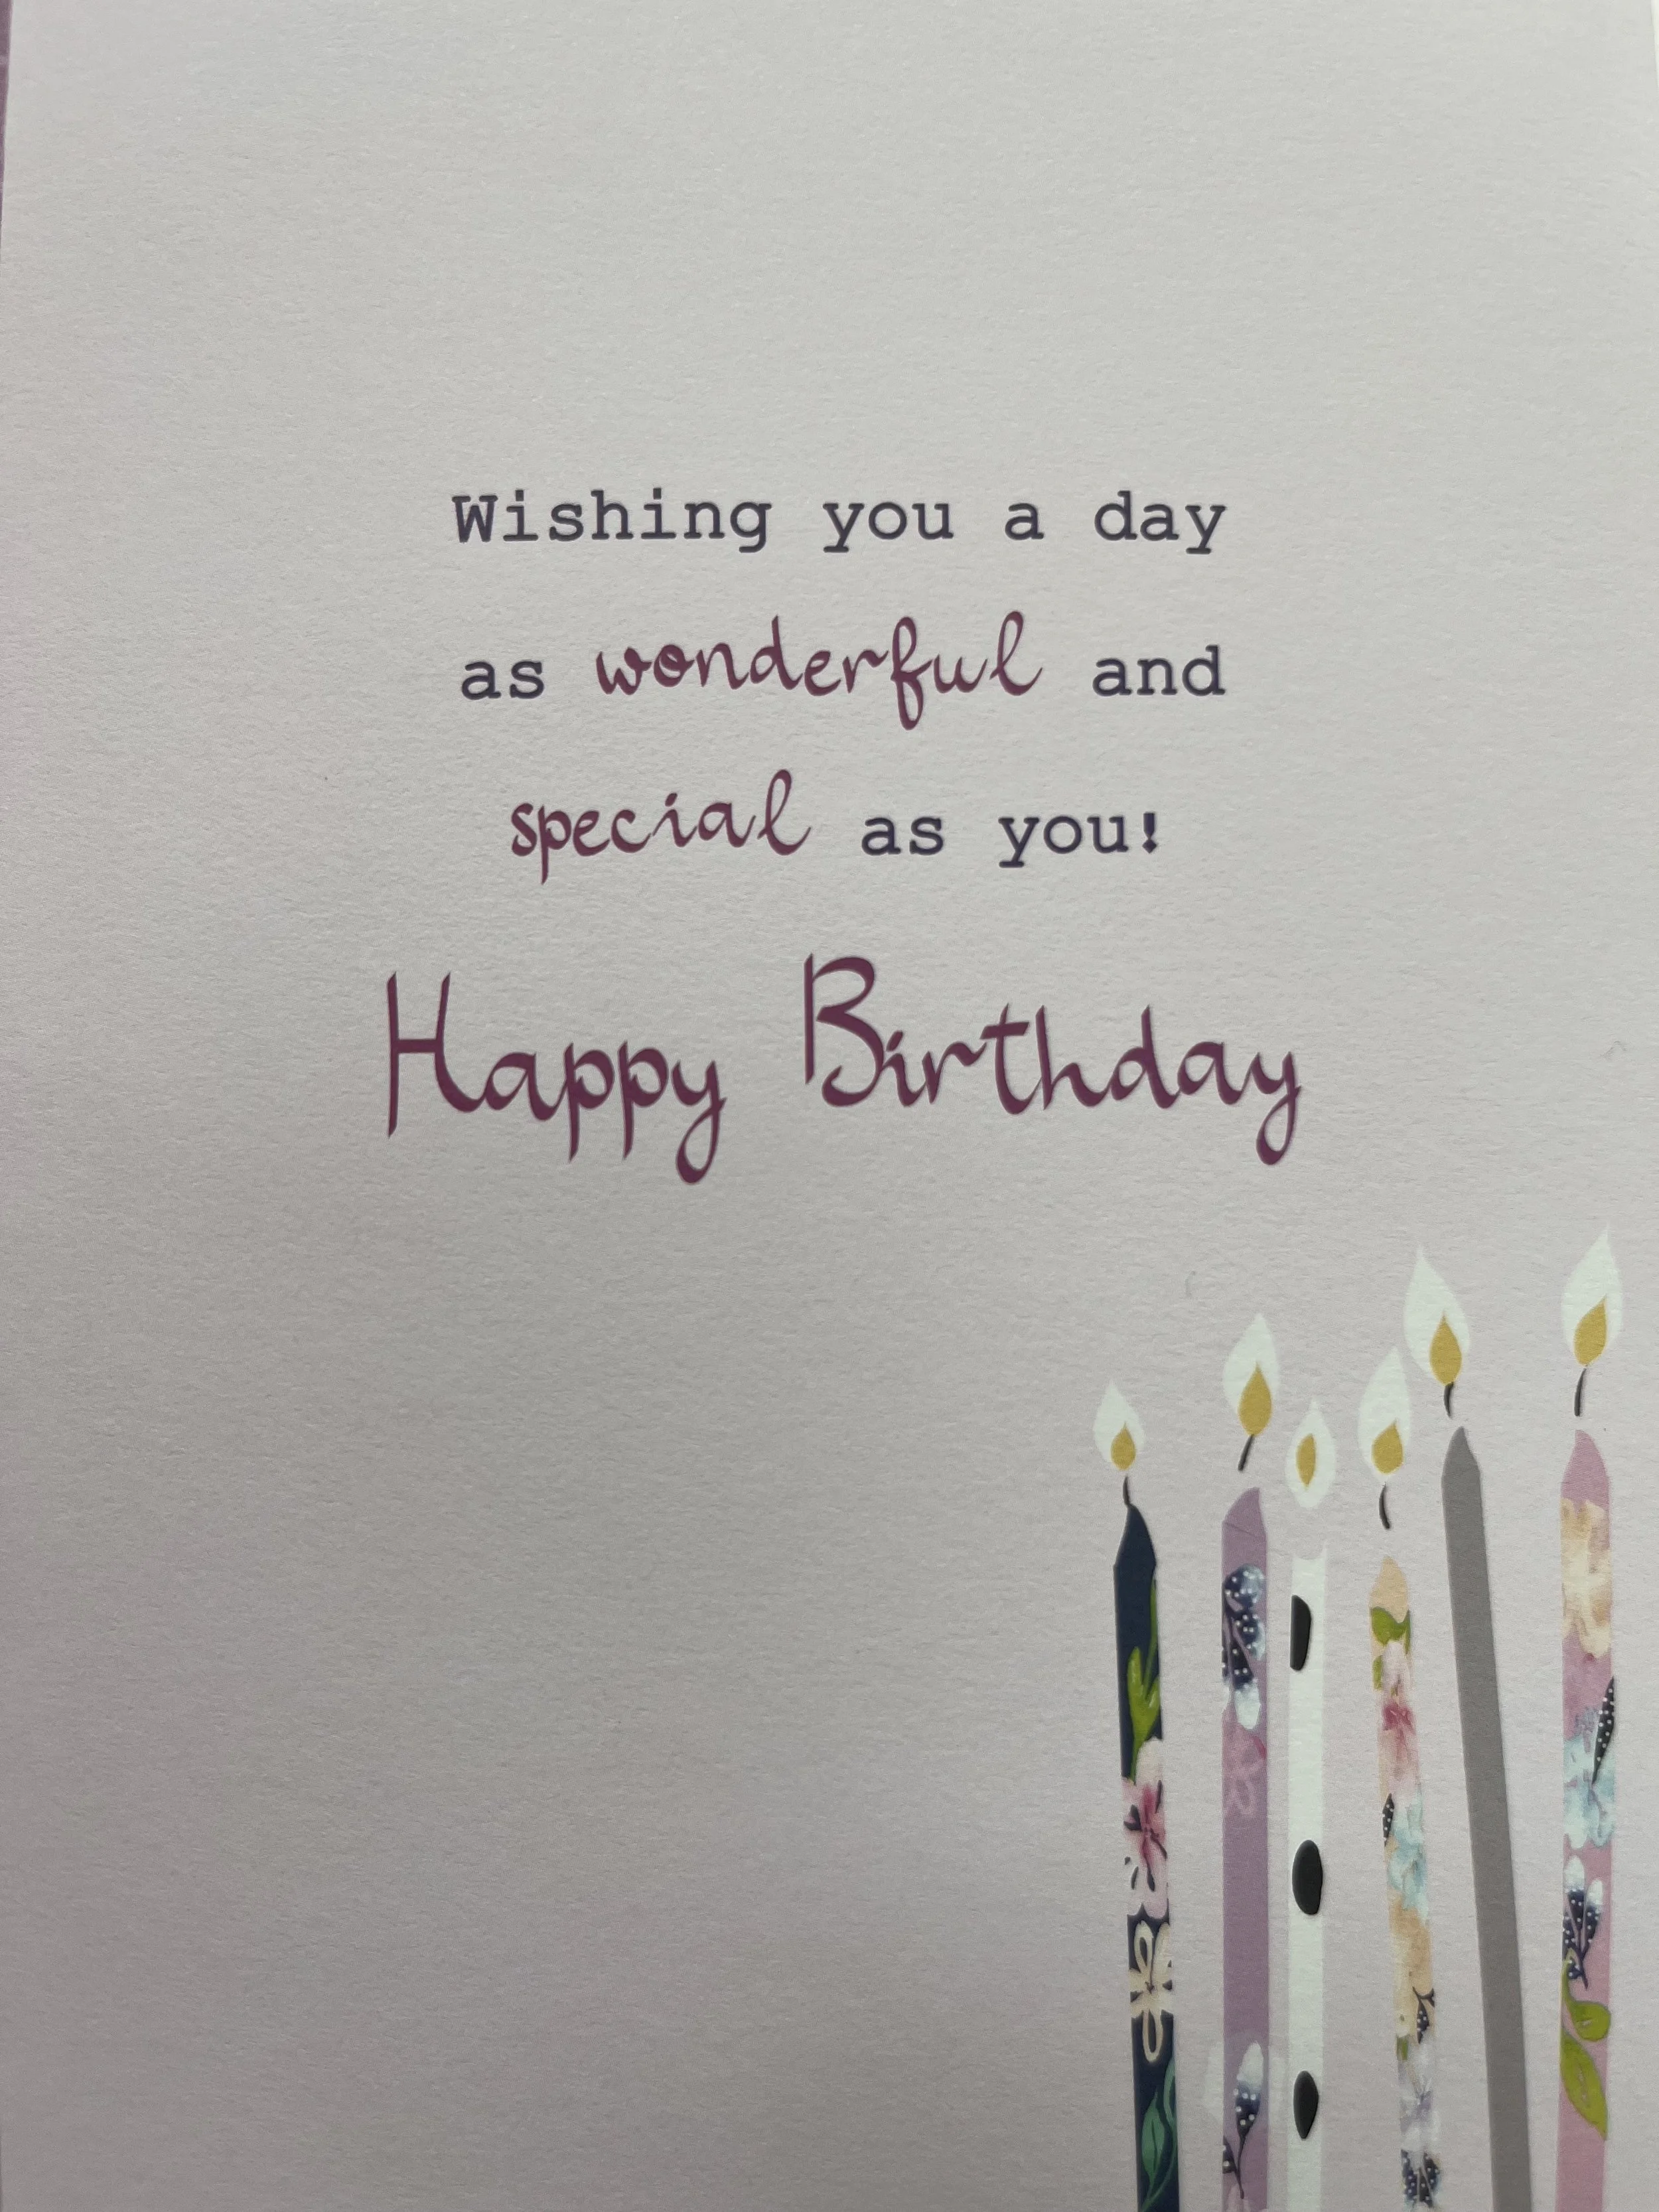 Wishing you a day
as wonderful and
special as you!
Happy Birthday